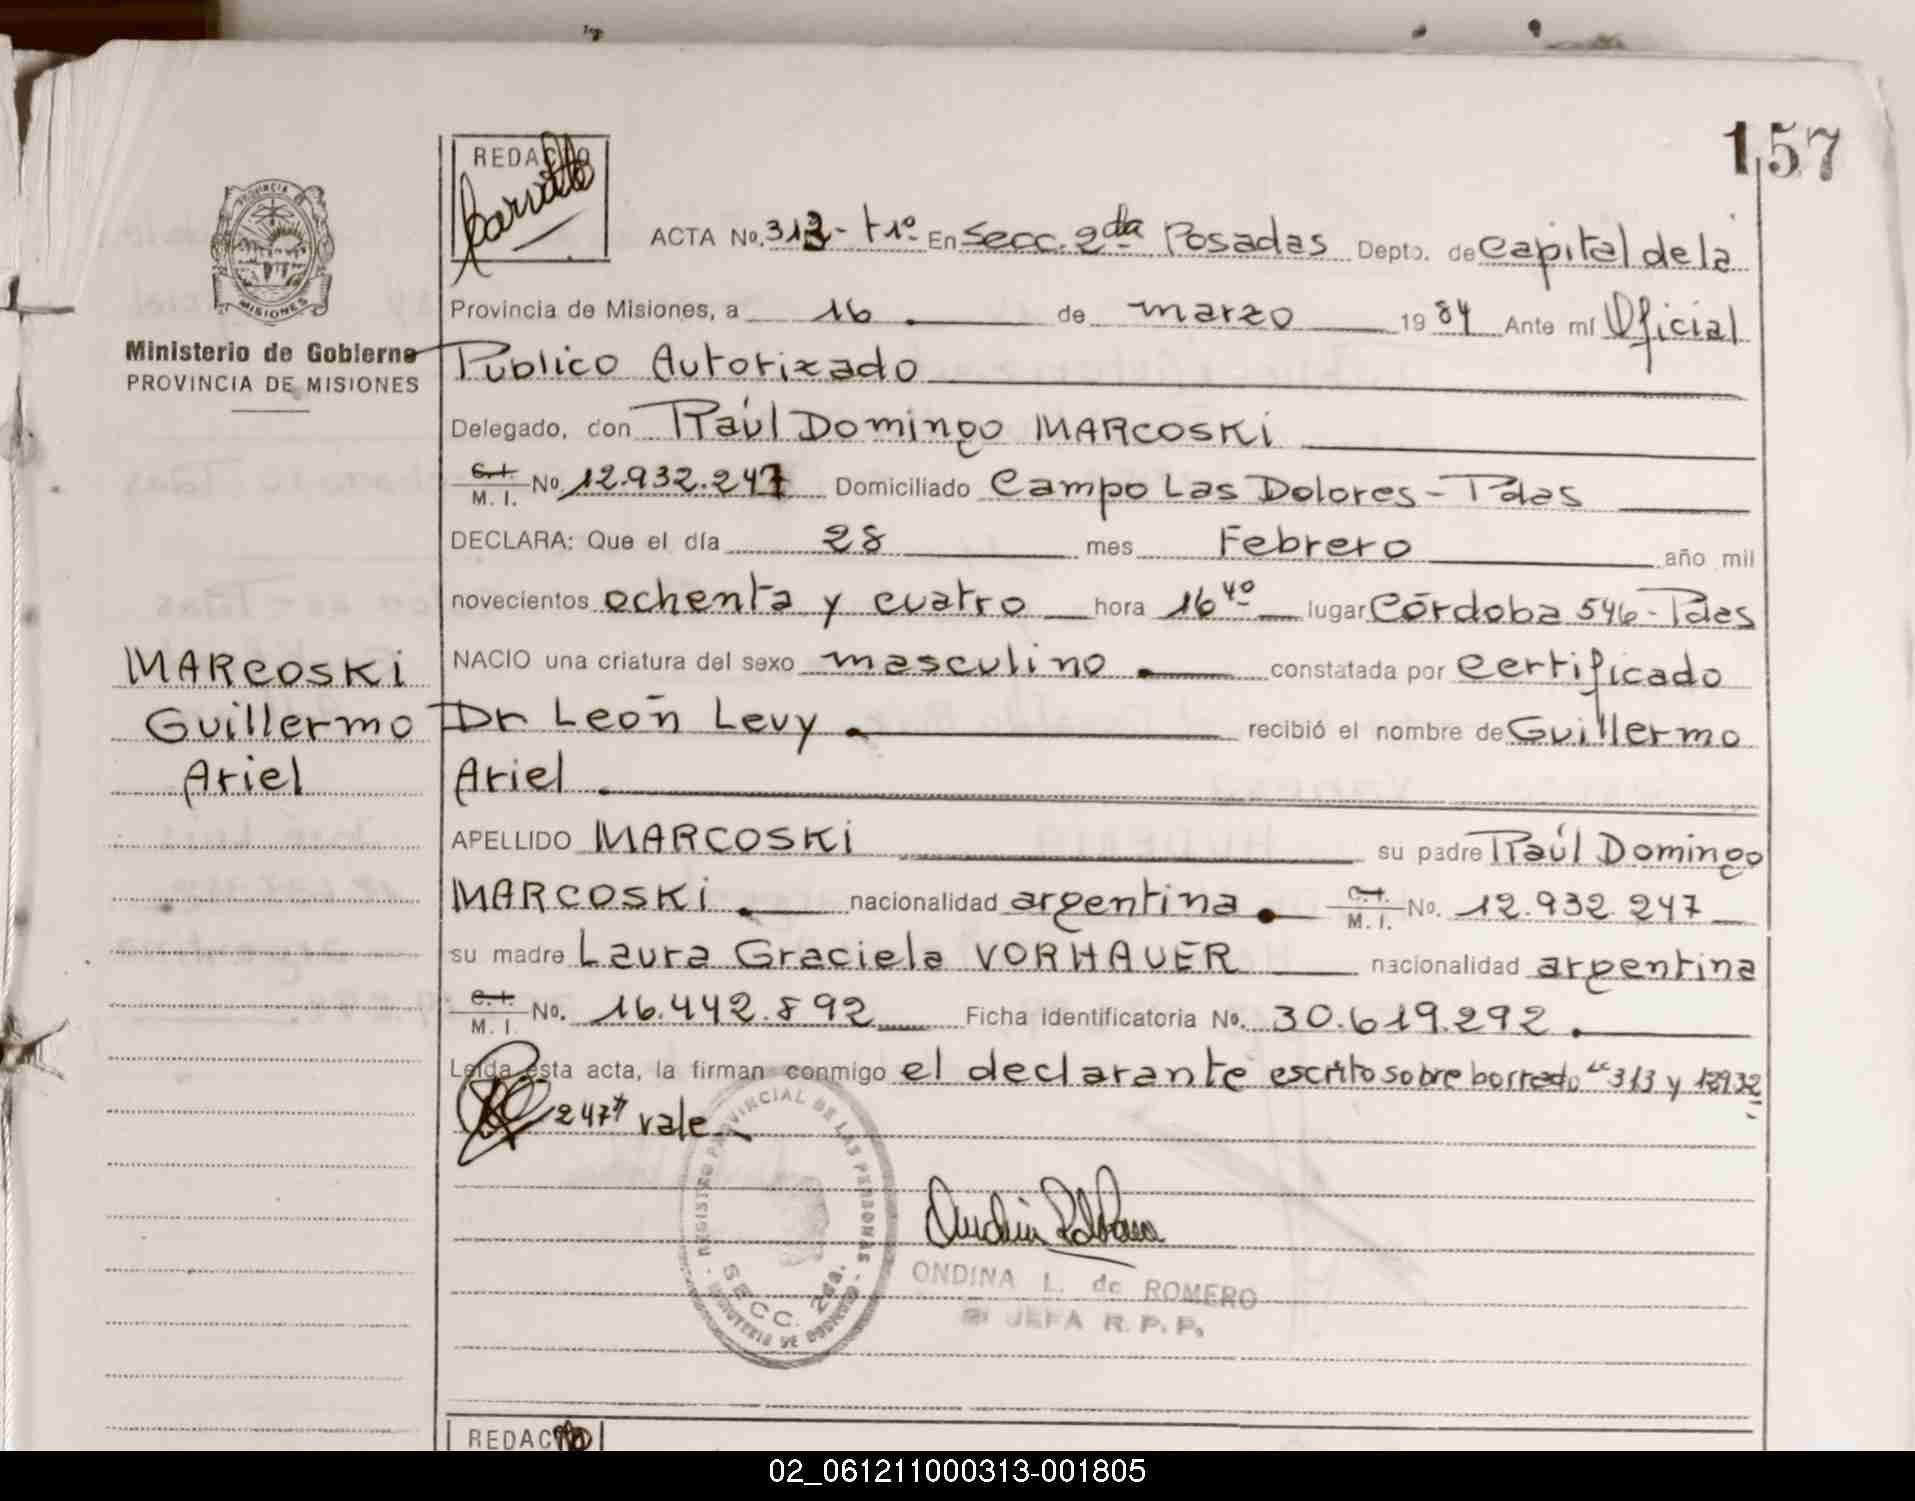 157
REDACTO
ACTA No. 313- t1º En Secc. 2da Posadas Depto. de Capital de la
PROVINCIA
MISIONES
Provincia de Misiones, a 16 de marzo 1984 Ante mí Oficial
Ministerio de Gobierno
PROVINCIA DE MISIONES
Público Autorizado
Delegado, don Raúl Domingo MARCOSKi
C.I. M. I. No. 12.932.247 Domiciliado Campo Las Dolores - Pdas
DECLARA: Que el día 28 mes Febrero año mil
novecientos ochenta y cuatro hora 16 40 lugar Córdoba 546 - Pdas
MARCOSKi
Guillermo
Ariel
NACIO una criatura del sexo masculino constatada por certificado
Dr León Levy recibió el nombre de Guillermo
Ariel
APELLIDO MARCOSKi su padre Raúl Domingo
MARCOSKi nacionalidad argentina C.I. M. I. No. 12.932.247
su madre Laura Graciela VORHAUER nacionalidad argentina
C.I. M. I. No. 16.442.892 Ficha identificatoria No. 30.619.292
Leída esta acta, la firman conmigo el declarante escrito sobre borrado "313 y 12932
247" vale
REGISTRO PROVINCIAL DE LAS PERSONAS
SECC. 2da.
MINISTERIO DE GOBIERNO
ONDINA L. de ROMERO
JEFA R. P. P.
REDACTO
02_061211000313-001805